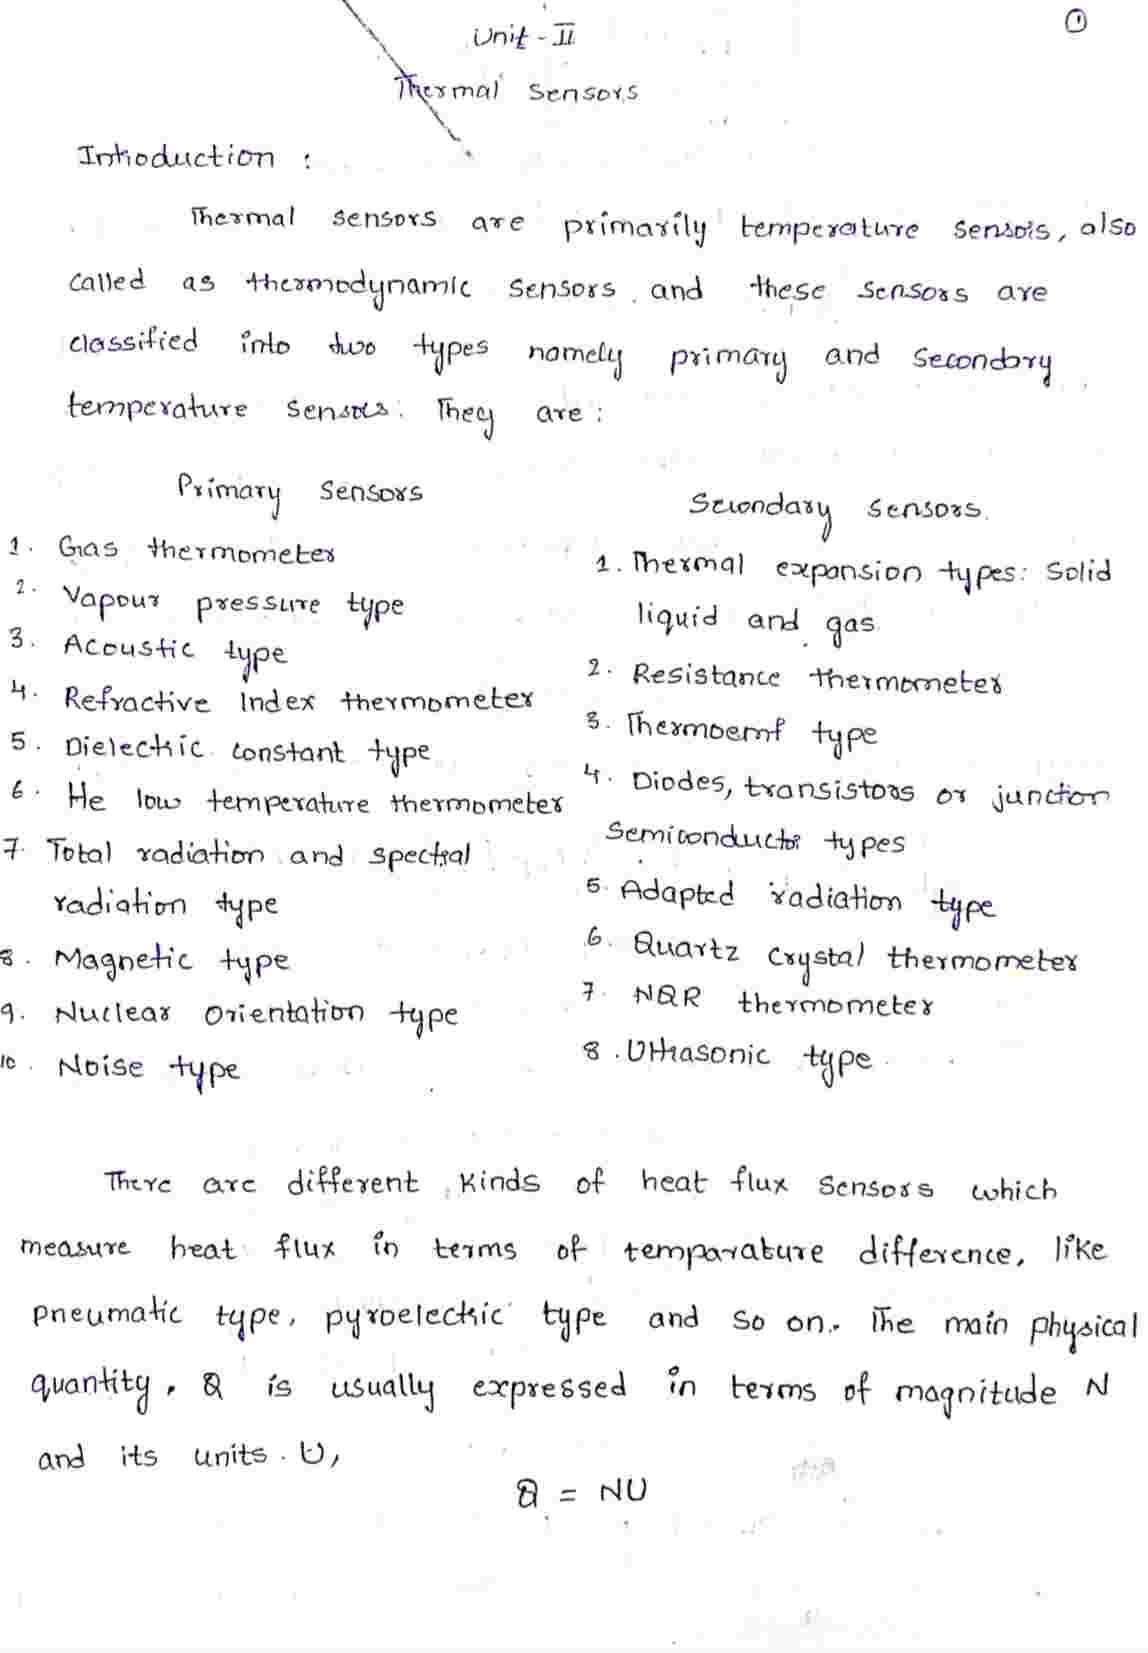 ①
Unit - II
Thermal Sensors
Introduction :
Thermal sensors are primarily temperature sensors, also
called as thermodynamic sensors and these sensors are
classified into two types namely primary and secondary
temperature sensors. They are:
Primary Sensors
1. Gas thermometer
2. Vapour pressure type
3. Acoustic type
4. Refractive Index thermometer
5. Dielectric constant type
6. He low temperature thermometer
7. Total radiation and spectral
radiation type
8. Magnetic type
9. Nuclear Orientation type
10. Noise type
Secondary sensors.
1. Thermal expansion types: Solid
liquid and gas.
2. Resistance thermometer
3. Thermoemf type
4. Diodes, transistors or junction
semiconductor types
5. Adapted radiation type
6. Quartz crystal thermometer
7. NQR thermometer
8. Ultrasonic type.
There are different kinds of heat flux sensors which
measure heat flux in terms of temparature difference, like
pneumatic type, pyroelectric type and so on. The main physical
quantity, Q is usually expressed in terms of magnitude N
and its units. U,
Q = NU